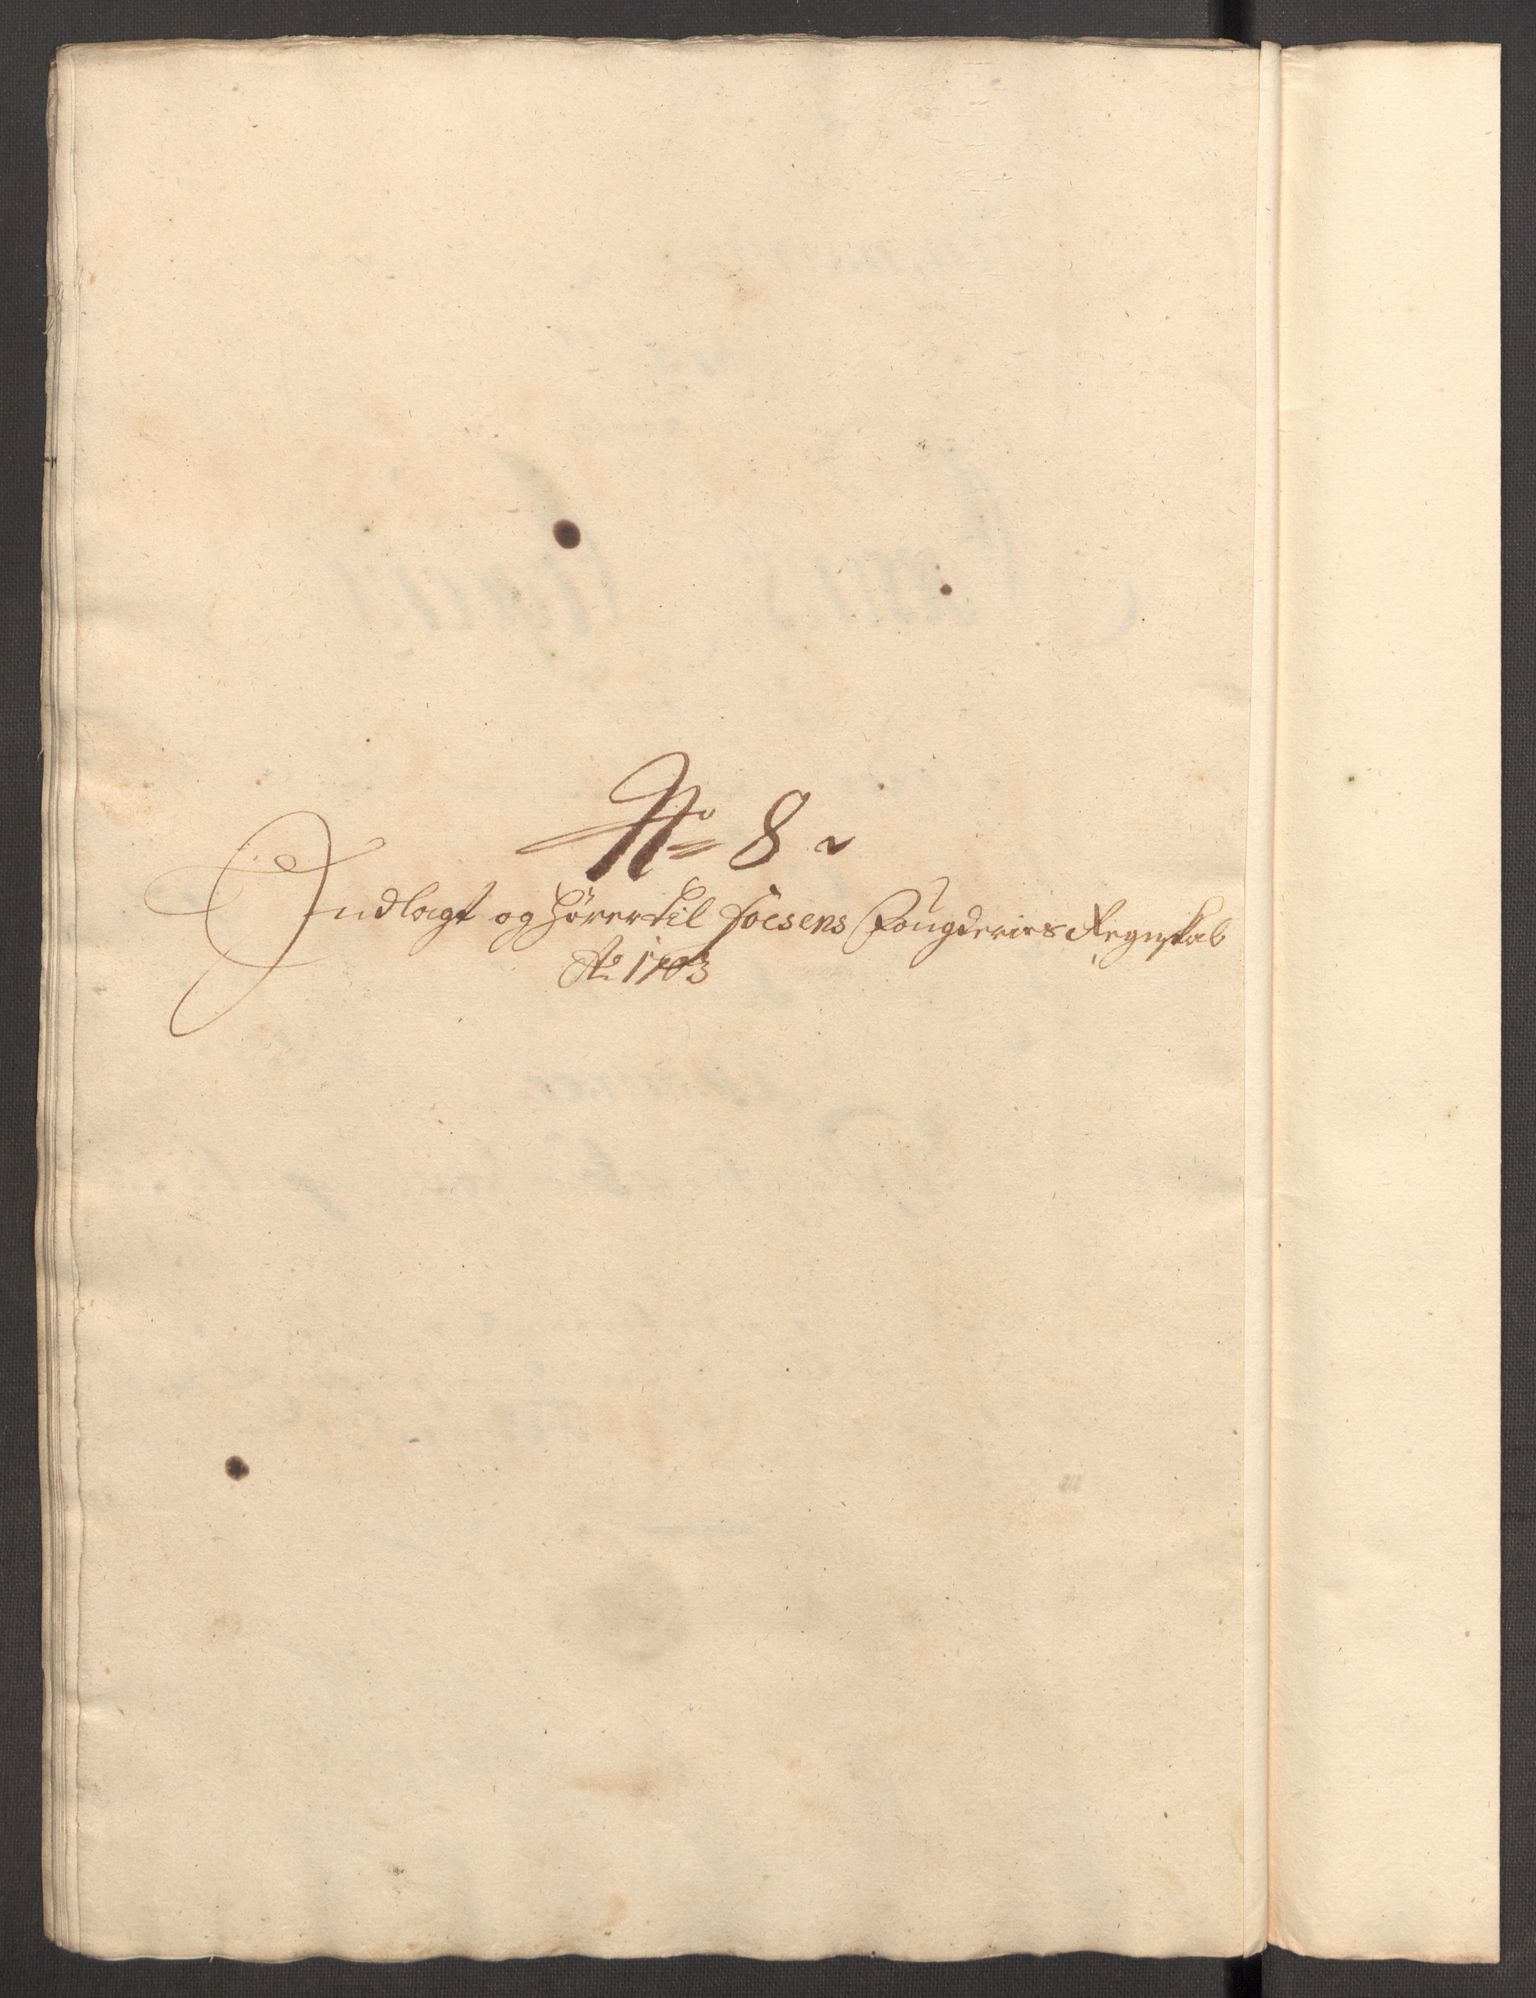 No 8
Indlagt og hører til Foesens Fougderies Regnskab
Ao 1703